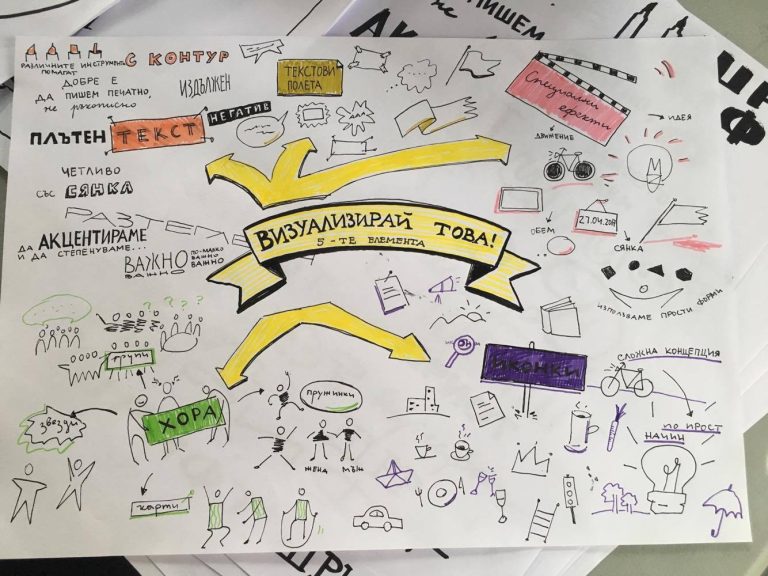 РАЗЛИЧНИТЕ ИНСТРУМЕНТИ
ПОМАГАТ
С КОНТУР
ДОБРЕ Е
ДА ПИШЕМ ПЕЧАТНО,
не ръкописно
ИЗДЪЛЖЕН
НЕГАТИВ
ПЛЪТЕН
ТЕКСТ
ЧЕТЛИВО
СЪС СЯНКА
РАЗТЕГЛЕН
ДА АКЦЕНТИРАМЕ
И ДА СТЕПЕНУВАМЕ...
ВАЖНО
ВАЖНО
ПО-МАЛКО
ВАЖНО
ВАЖНО
ТЕКСТОВИ
ПОЛЕТА
ДАА
Специални
ефекти
ДВИЖЕНИЕ
ИДЕЯ
ОБЕМ
СЯНКА
ИЗПОЛЗВАМЕ ПРОСТИ ФОРМИ
ВИЗУАЛИЗИРАЙ ТОВА!
5-ТЕ ЕЛЕМЕНТА
ИКОНКИ
СЛОЖНА КОНЦЕПЦИЯ
ПО ПРОСТ
НАЧИН
? ? ? ?
групи
ХОРА
звезди
пружинки
ЖЕНА
МЪЖ
карти
ПИШЕМ
не